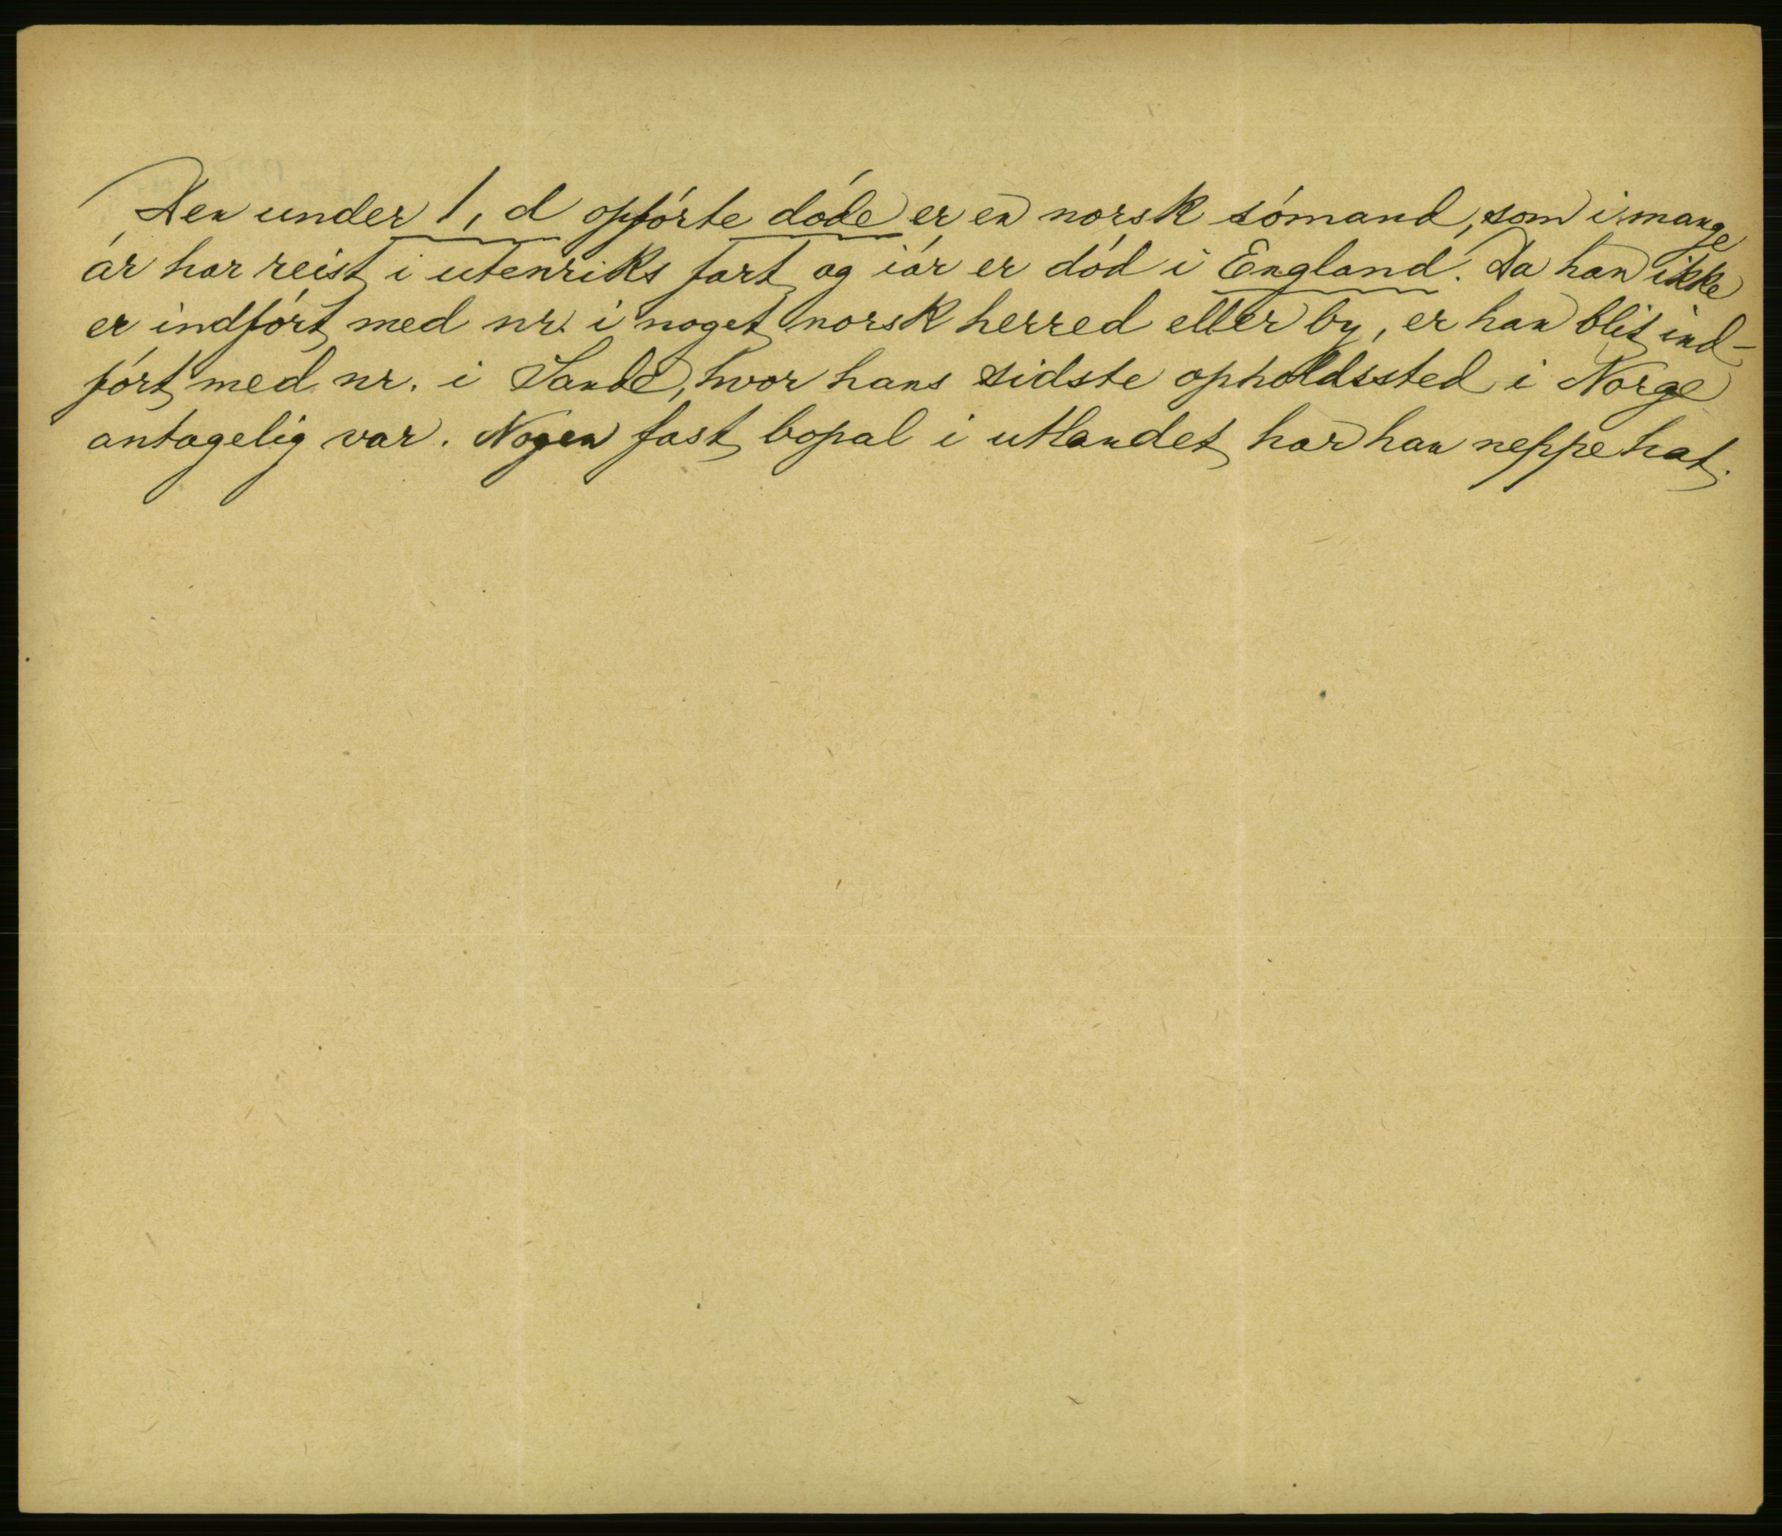 Den under 1, d opførte døde er en norsk sømand, som i mange
år har reist i utenriks fart og iår er død i England. Da han ikke
er indført med nr. i noget norsk herred eller by, er han blit ind-
ført med nr. i Sande, hvor hans sidste opholdssted i Norge
antagelig var. Nogen fast bopal i utlandet har han neppe hat.